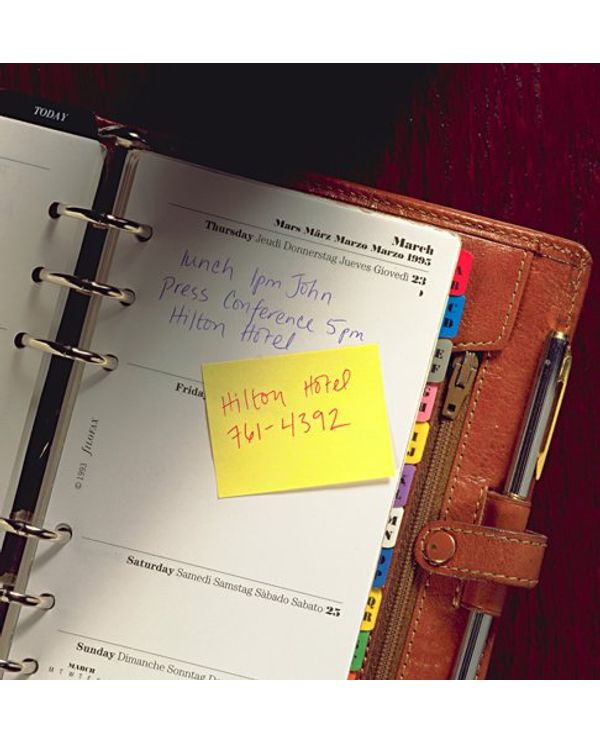 TODAY
March
Mars März Marzo Marzo 1995
Thursday Jeudi Donnerstag Jueves Giovedì 23
lunch 1pm John
Press Conference 5pm
Hilton Hotel
Friday
Hilton Hotel
761-4392
© 1993 FILOFAX
Saturday Samedi Samstag Sàbado Sabato 25
Sunday Dimanche Sonntag D
MARCH
M T W T F
A
B
C
D
E
F
I
J
K
L
M
N
O
P
Q
R